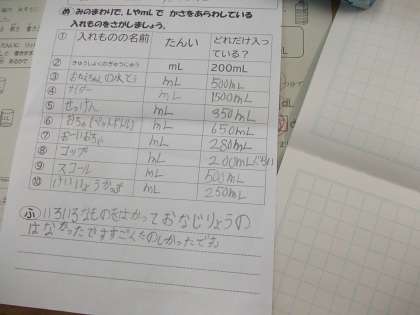 め みのまわりで、LやmLで かさをあらわしている
入れものをさがしましょう。
① 入れものの名前 たんい どれだけ入っ
ている？
② きゅうしょくのぎゅうにゅう mL 200mL
③ mL 500mL
④ サイダー mL 1500mL
⑤ せっけん mL 350mL
⑥ mL 650mL
⑦ おーいおちゃ mL 280mL
⑧ コップ mL 200mLぐらい
⑨ スコール mL 500mL
⑩ けいりょうカップ mL 250mL
ふ いろいろなものをさがして おなじりょうの
はなかったです すごくたのしかったです
dL